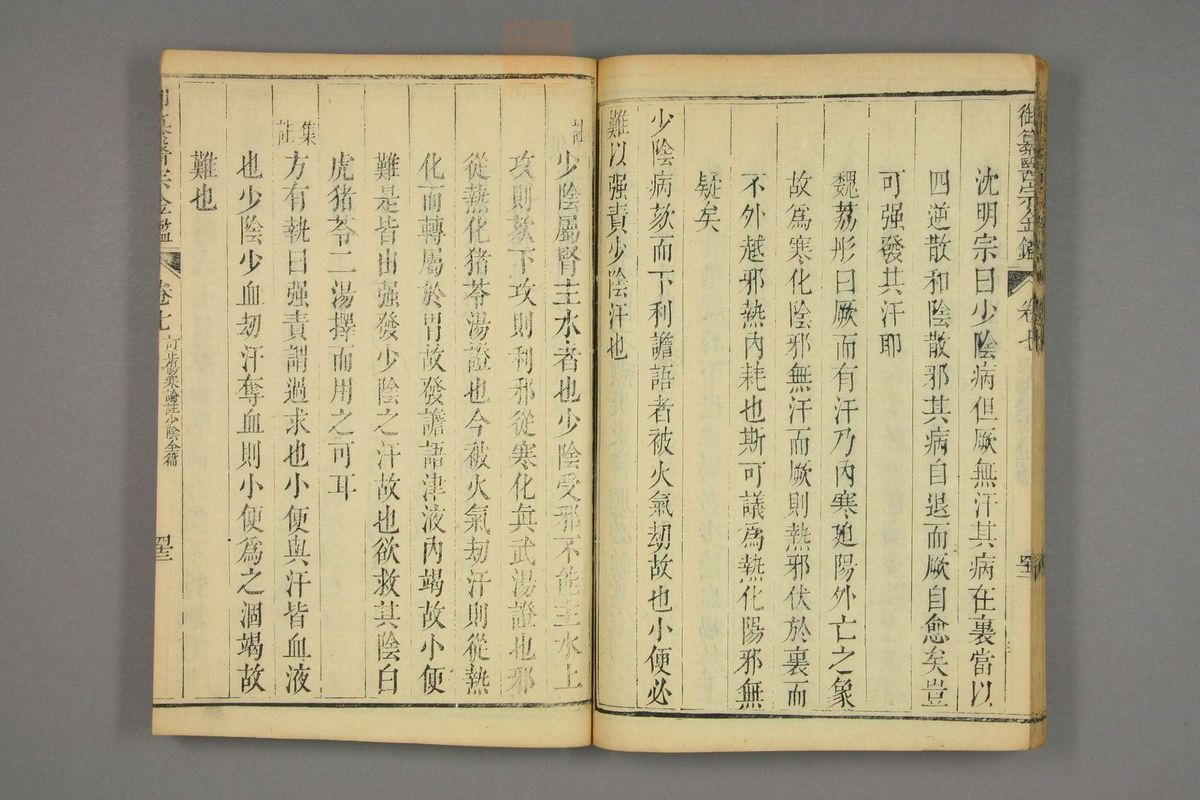 御纂醫宗金鑑 卷七
沈明宗曰少陰病但厥無汗其病在裏當以
四逆散和陰散邪其病自退而厥自愈矣豈
可强發其汗耶
魏荔彤曰厥而有汗乃內寒迫陽外亡之象
故爲寒化陰邪無汗而厥則熱邪伏於裏而
不外越邪熱內耗也斯可議爲熱化陽邪無
疑矣
少陰病欬而下利譫語者被火氣劫故也小便必
難以强責少陰汗也
註少陰屬腎主水者也少陰受邪不能主水上
攻則欬下攻則利邪從寒化眞武湯證也邪
從熱化猪苓湯證也今被火氣劫汗則從熱
化而轉屬於胃故發譫語津液內竭故小便
難是皆由强發少陰之汗故也欲救其陰白
虎猪苓二湯擇而用之可耳
集註方有執曰强責謂過求也小便與汗皆血液
也少陰少血劫汗奪血則小便爲之涸竭故
難也
卷七 訂正傷寒論註少陰全篇